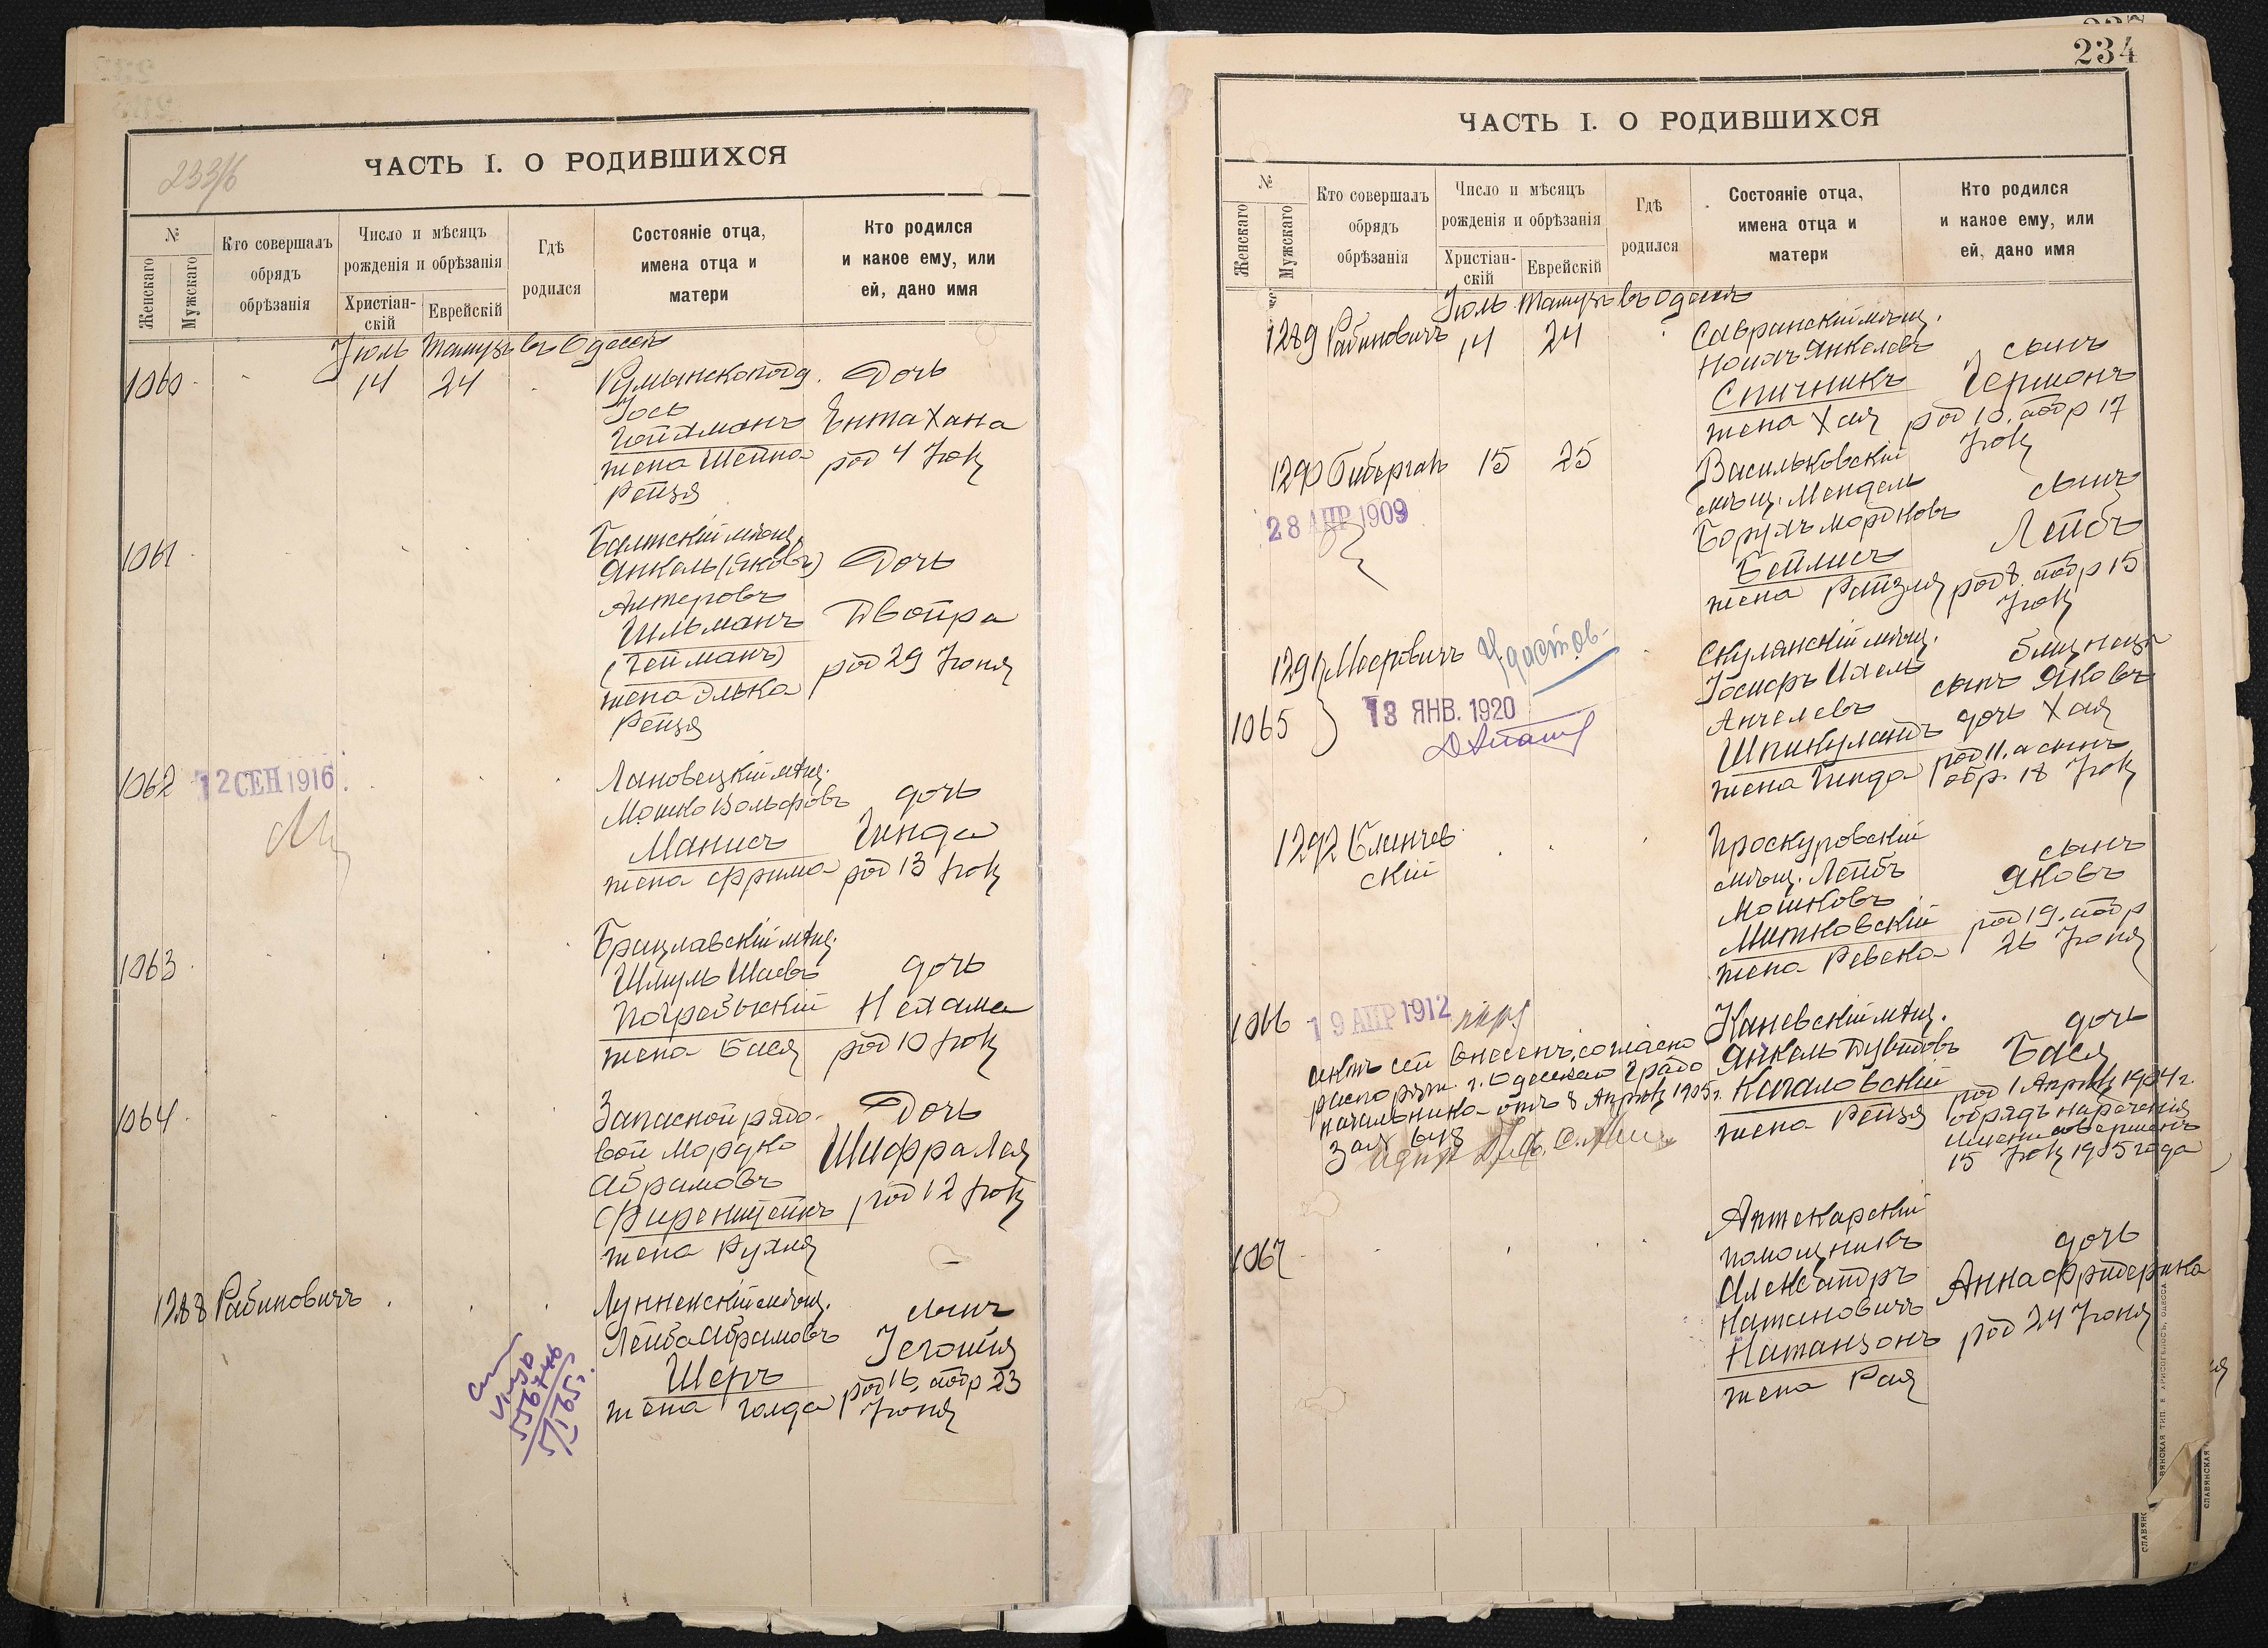 233/б
ЧАСТЬ I. О РОДИВШИХСЯ
№
Женскаго
Мужскаго
Кто совершалъ
обрядъ
обрѣзанія
Число и мѣсяцъ
рожденія и обрѣзанія
Христіан-
скій
Еврейскій
Гдѣ
родился
Состояніе отца,
имена отца и
матери
Кто родился
и какое ему, или
ей, дано имя
Іюль Тамузъ въ Одессѣ
1060 14 24
Румынскоподд.
Іось
Гойхманъ
жена Шейна
Рейзя
Дочь
Ента Хана
род 4 Іюля
1061
Балтскій мѣщ.
Янкель (Яковъ)
Алтеровъ
Гильманъ
(Гейманъ)
жена Элька
Рейзя
Дочь
Двойра
род 29 Іюня
1062
12 СЕН 1916
Лановецкій мѣщ.
Мошко Вольфовъ
Манисъ
жена Фрима
дочь
Гинда
род 13 Іюля
1063
Брацлавскій мѣщ.
Шмуль Шаевъ
Погребыскій
жена Бася
дочь
Нехама
род 10 Іюля
1064
Запасной рядо-
вой Мордко
Абрамовъ
Фиренштейнъ
жена Рухля
Дочь
Шифра Лея
род 12 Іюля
1288 Рабиновичъ
Луннекскій мѣщ.
Лейба Абрамовъ
Шеръ
жена Голда
сынъ
Іегошія
род 16, а обр 23
Іюня
556746
5/I 65 г.
234
ЧАСТЬ I. О РОДИВШИХСЯ
№
Женскаго
Мужскаго
Кто совершалъ
обрядъ
обрѣзанія
Число и мѣсяцъ
рожденія и обрѣзанія
Христіан-
скій
Еврейскій
Гдѣ
родился
Состояніе отца,
имена отца и
матери
Кто родился
и какое ему, или
ей, дано имя
Іюль Тамузъ въ Одессѣ
1289 Рабиновичъ 14 24
Савранскій мѣщ.
Ноихъ Янкелевъ
Спичникъ
жена Хая
сынъ
Герионъ
род 10, а обр 17
Іюля
1290 Гибергалъ 15 25
28 АПР 1909
Васильковскій
мѣщ. Мендель
Борухъ Мордковъ
Бейлисъ
жена Рейзля
сынъ
Лейбъ
род 8, а обр 15
Іюля
1291 Меєровичъ
1065
Удостов-
13 ЯНВ. 1920
Скулянскій мѣщ.
Іосифъ Ихель
Анчелевъ
Шпикуландъ
жена Гинда
близнецы
сынъ Яковъ
дочь Хая
род 11, а сынъ
обр. 18 Іюля
1292 Клинчев
скій
Проскуровскій
мѣщ. Лейбъ
Мошковъ
Митковскій
жена Ревека
сынъ
Яковъ
род 19, а обр
26 Іюня
1066
19 АПР 1912
актъ сей внесенъ, согласно
распоряж. г. Одесскаго Градо
начальника отъ 8 Апрѣля 1905 г.
Каневскій мѣщ.
Янкель Дувидовъ
Кагаловскій
жена Рейзя
дочь
Бася
род 1 Апрѣля 1904 г.
обрядъ нареченія
имени совершенъ
15 Іюля 1905 года
1067
Аптекарскій
помощникъ
Александръ
Натановичъ
Натанзонъ
жена Рая
дочь
Анна Фридерика
род 24 Іюня